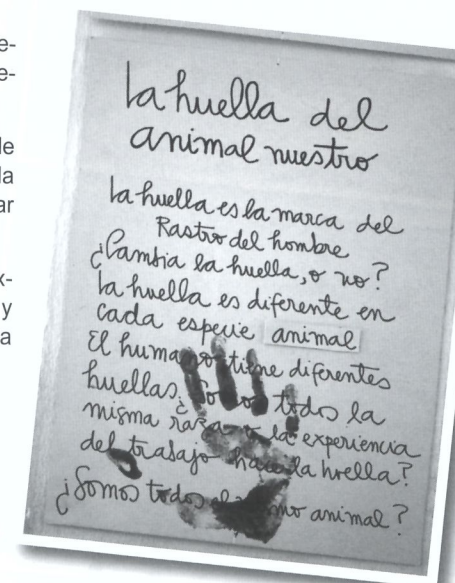 e-
e-
de
da
ar
x-
y
a
La huella del
animal nuestro
La huella es la marca del
Rastro del hombre
¿Cambia la huella, o no?
La huella es diferente en
cada especie animal
El humano tiene diferentes
huellas. ¿Somos todos la
misma raza o la experiencia
del trabajo hace la huella?
¿Somos todos el mismo animal?